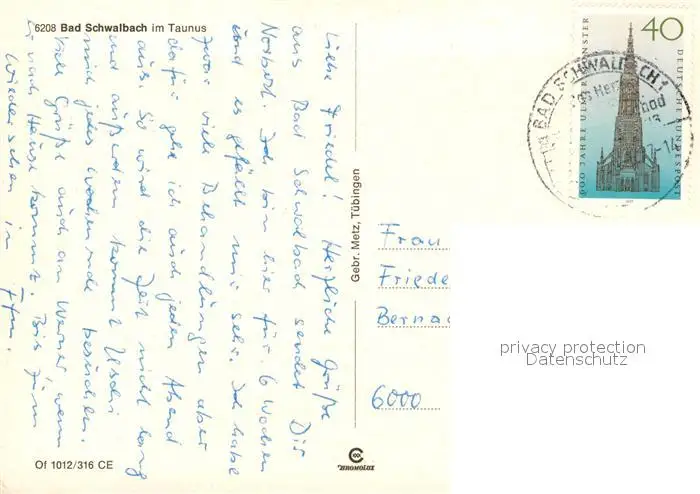 6208 Bad Schwalbach im Taunus
Liebe Friedel! Herzliche Grüße
aus Bad Schwalbad sendet Dir
Norbert. Ich bin hier für 6 Wochen
und es gefällt mir sehr. Ich habe
zwar viele Behandlungen aber
dafür geh ich auch jeden Abend
aus. So wird die Zeit nicht lang
und außerdem kommt Uschi
mich jedes Wochenende besuchen.
Viele Grüße auch an Werner wenn
er nach Hause kommt. Bis zum
Wiedersehen in Ffm.
Of 1012/316 CE
Gebr. Metz, Tübingen
CHROMOLUX
40
600 JAHRE ULMER MÜNSTER
DEUTSCHE BUNDESPOST
1977
BAD SCHWALBACH 1
Das Her
bad
13
7-14
Frau
Friede
Berna
6000
privacy protection
Datenschutz